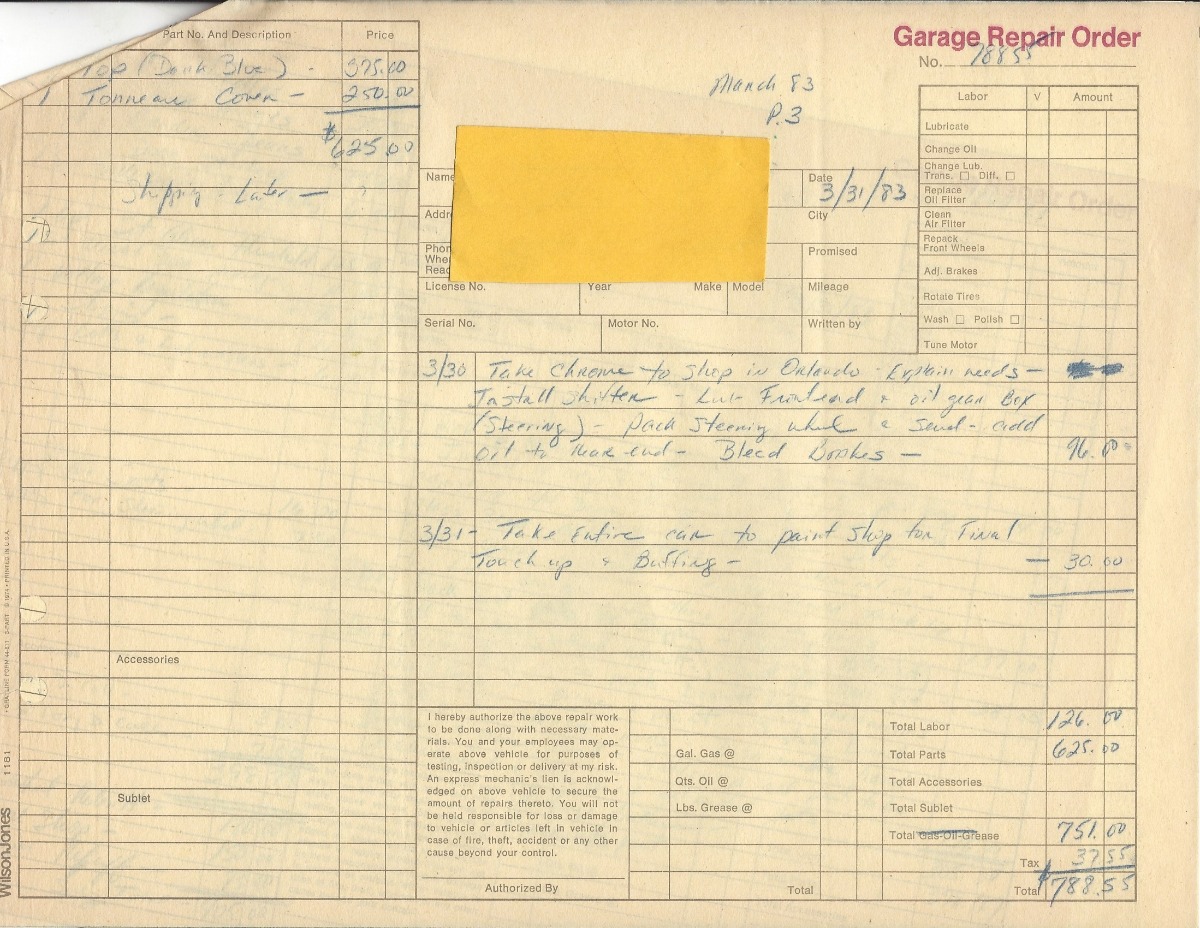 Garage Repair Order
No. 78855
Part No. And Description Price
Top (Dark Blue) - 375.00
1 Tonneau Cover - 250.00
$625.00
Shipping - Later -
March 83
P.3
Labor V Amount
Lubricate
Change Oil
Change Lub.
Trans. □ Diff. □
Replace
Oil Filter
Clean
Air Filter
Repack
Front Wheels
Adj. Brakes
Rotate Tires
Wash □ Polish □
Tune Motor
Name
Date
3/31/83
Addr
City
Phon
Whe
Read
Promised
License No. Year Make Model Mileage
Serial No. Motor No. Written by
3/30 Take Chrome to shop in Orlando - Explain needs -
Install shifter - Lub Frontend & oil gear Box
(Steering) - Pack Steering wheel & Send - add
oil to Rear end - Bleed Brakes - 96.00
3/31 - Take Entire car to paint shop for Final
Touch up & Buffing - 30.00
Accessories
Sublet
I hereby authorize the above repair work
to be done along with necessary mate-
rials. You and your employees may op-
erate above vehicle for purposes of
testing, inspection or delivery at my risk.
An express mechanic's lien is acknowl-
edged on above vehicle to secure the
amount of repairs thereto. You will not
be held responsible for loss or damage
to vehicle or articles left in vehicle in
case of fire, theft, accident or any other
cause beyond your control.
Authorized By
Gal. Gas @
Qts. Oil @
Lbs. Grease @
Total
Total Labor 126.00
Total Parts 625.00
Total Accessories
Total Sublet
Total Gas-Oil-Grease 751.00
Tax 37.55
Total $788.55
WilsonJones 1181 PRINTED IN U.S.A.